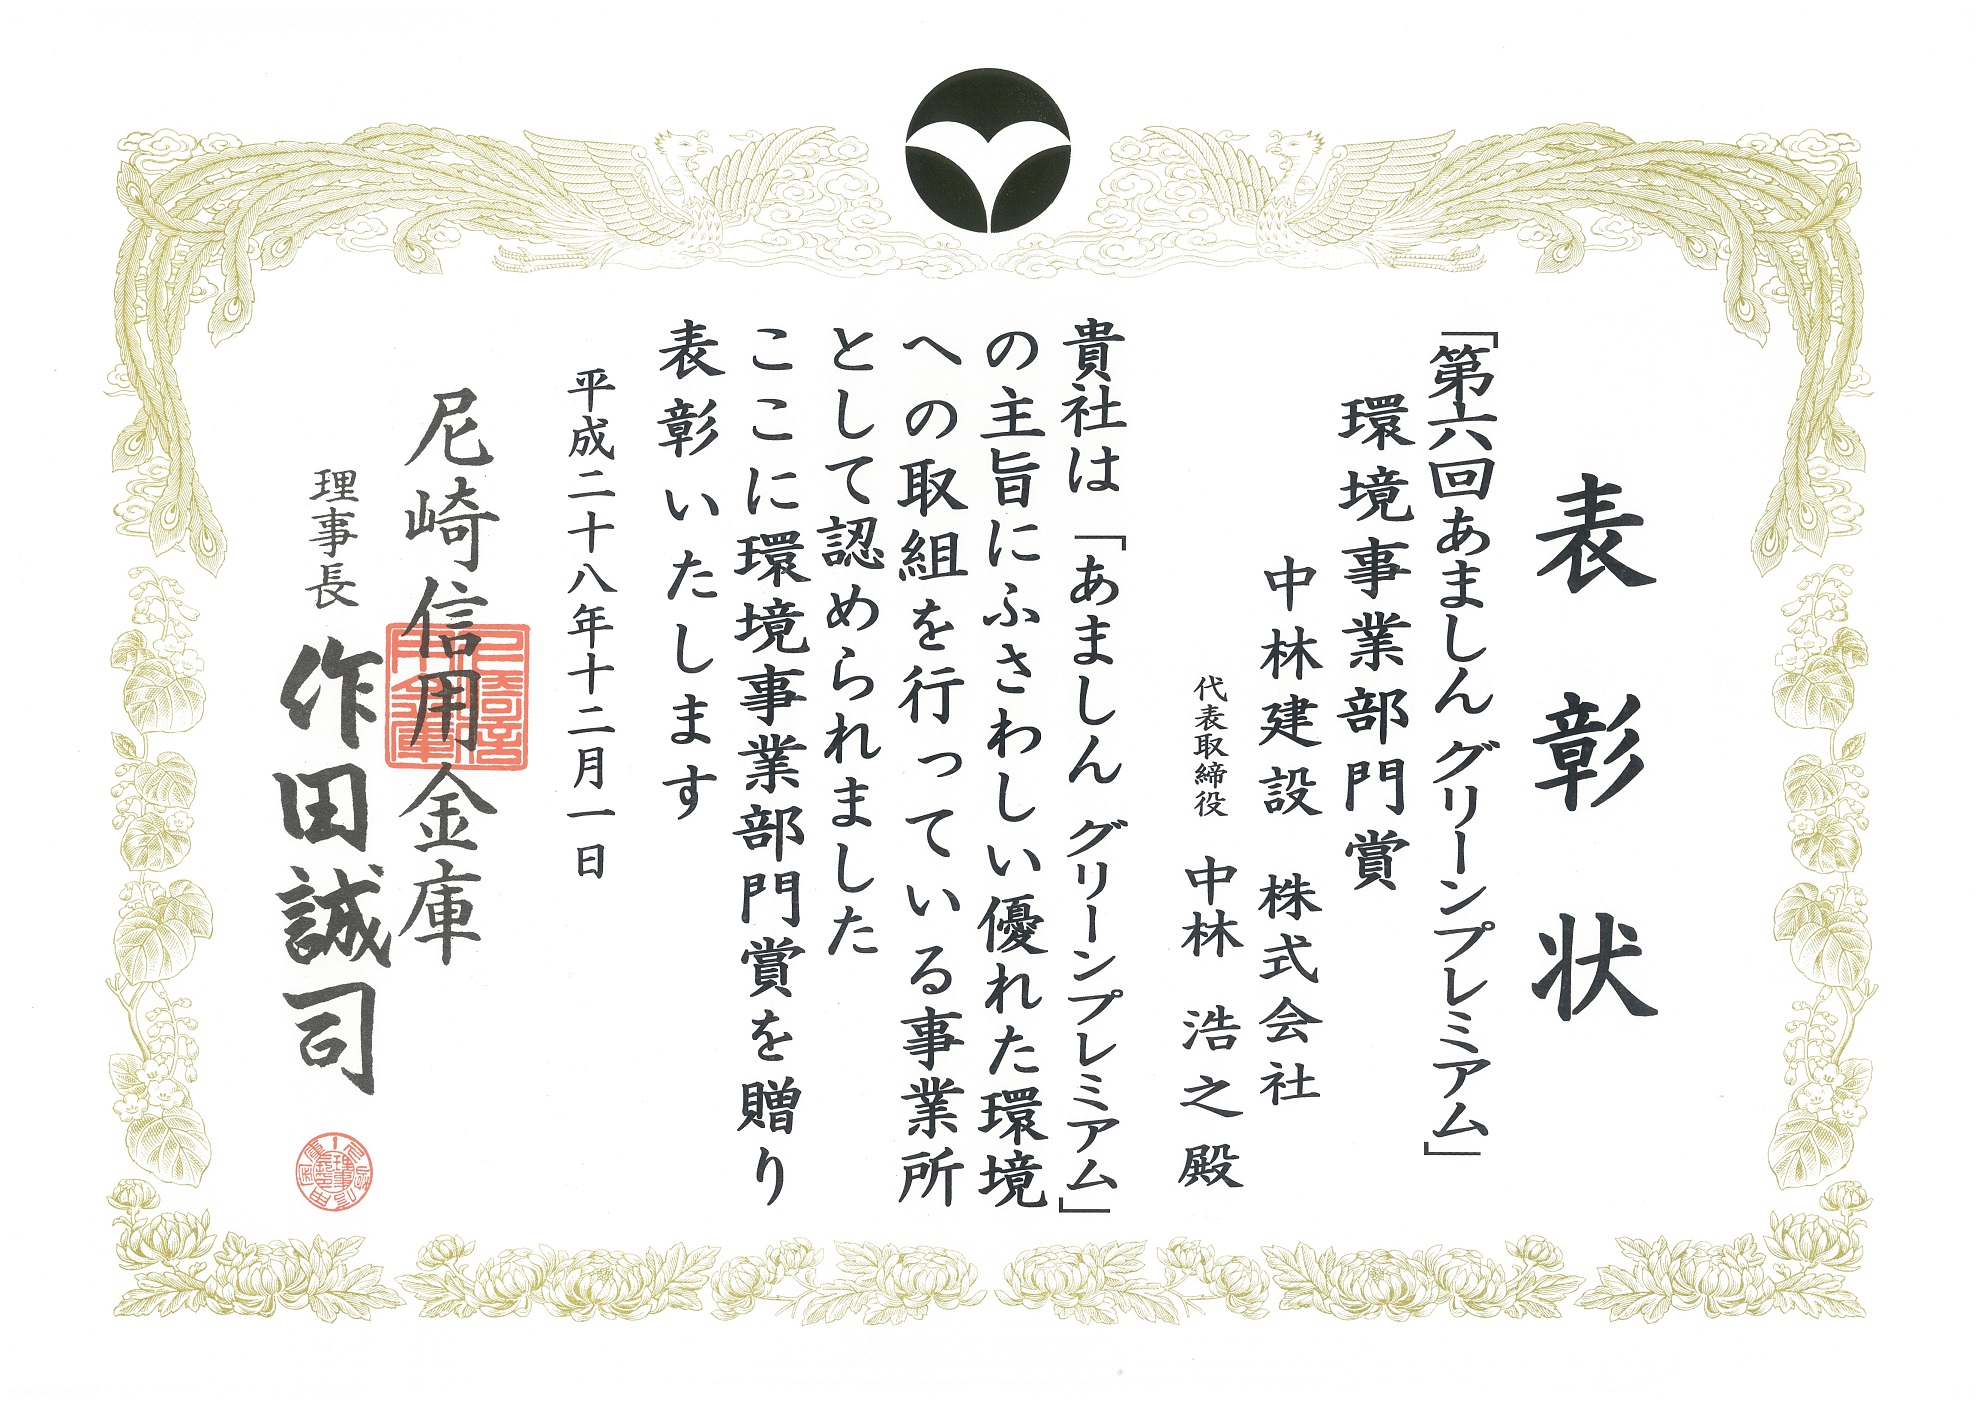 表彰状
「第六回あましん グリーンプレミアム」
環境事業部門賞
中林建設 株式会社
代表取締役 中林 浩之 殿
貴社は「あましん グリーンプレミアム」
の主旨にふさわしい優れた環境
への取組を行っている事業所
として認められました
ここに環境事業部門賞を贈り
表彰いたします
平成二十八年十二月一日
尼崎信用金庫
理事長 作田誠司